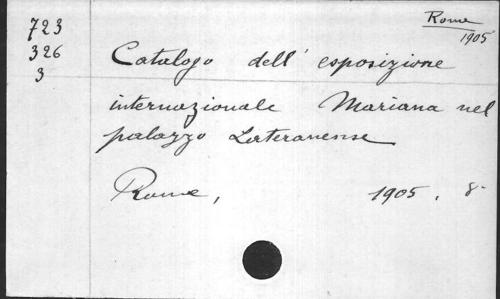 723
326
3
Rome
1905
Catalogo dell' esposizione
internazionale Mariana nel
palazzo Lateranense
Rome, 1905. 8-